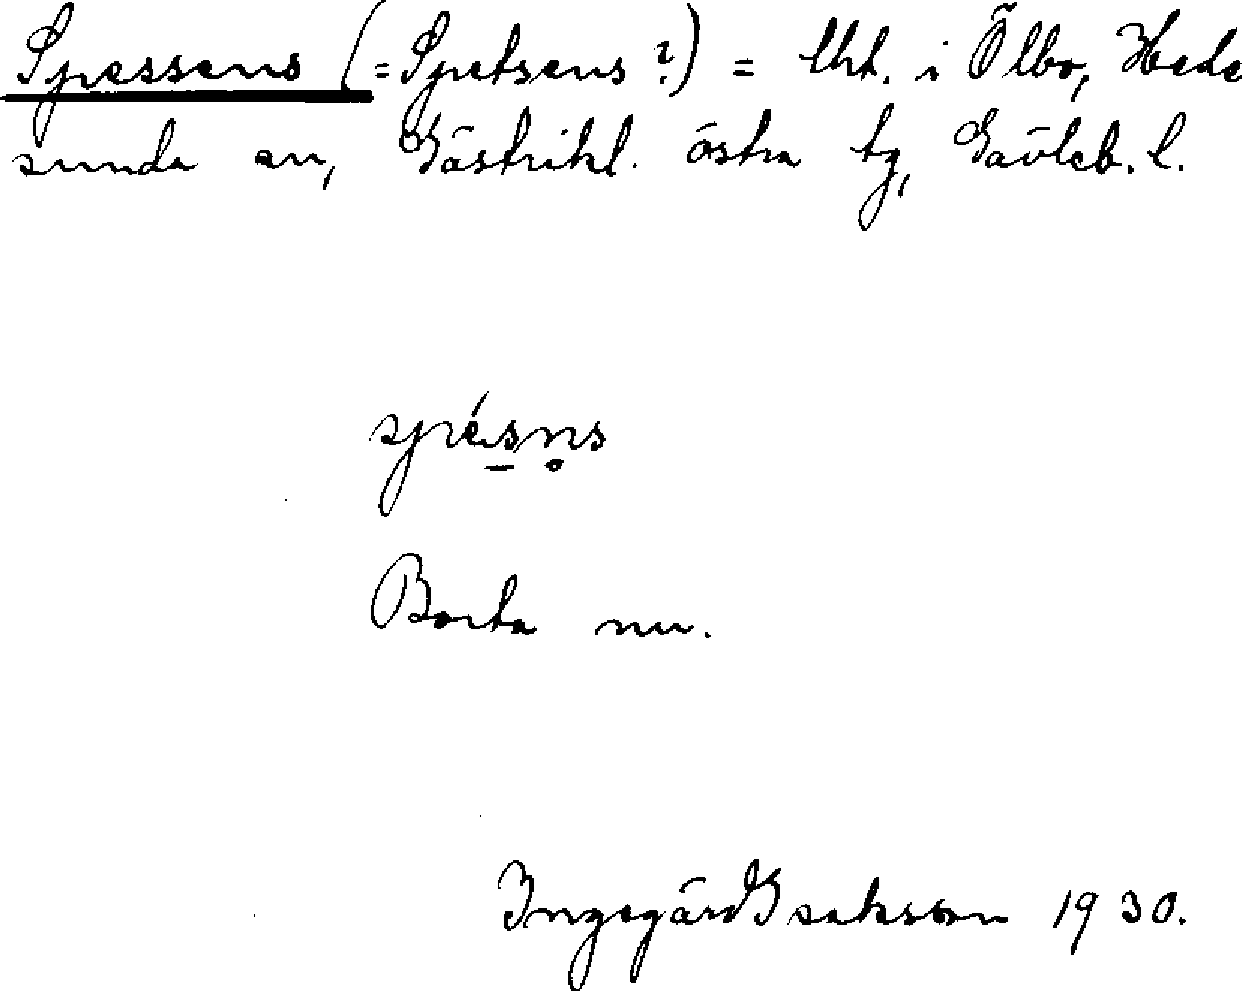 Spessens (=Spetsens?) = lht. i Ölbo, Hede
sunda sn, Gästrikl. östra tg, Gävleb. l.
spésn̥s
Borta nu.
Ingegärd Isaksson 1930.